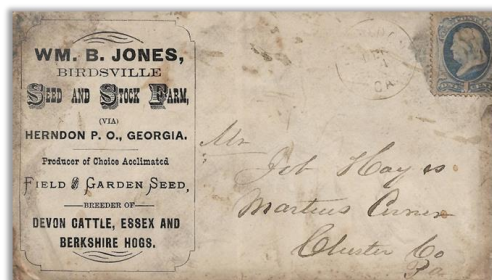 WM. B. JONES,
BIRDSVILLE
SEED AND STOCK FARM,
(VIA)
HERNDON P. O., GEORGIA.
Producer of Choice Acclimated
FIELD & GARDEN SEED,
BREEDER OF
DEVON CATTLE, ESSEX AND
BERKSHIRE HOGS.
GA
Mr
Job Hayes
Martins Corner
Chester Co
Pa